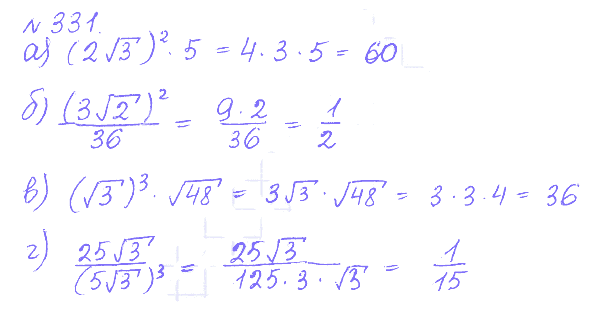 №331.
а) (2√3)² · 5 = 4 · 3 · 5 = 60
б) (3√2)²/36 = 9 · 2/36 = 1/2
в) (√3)³ · √48 = 3√3 · √48 = 3 · 3 · 4 = 36
г) 25√3/(5√3)³ = 25√3/125 · 3 · √3 = 1/15